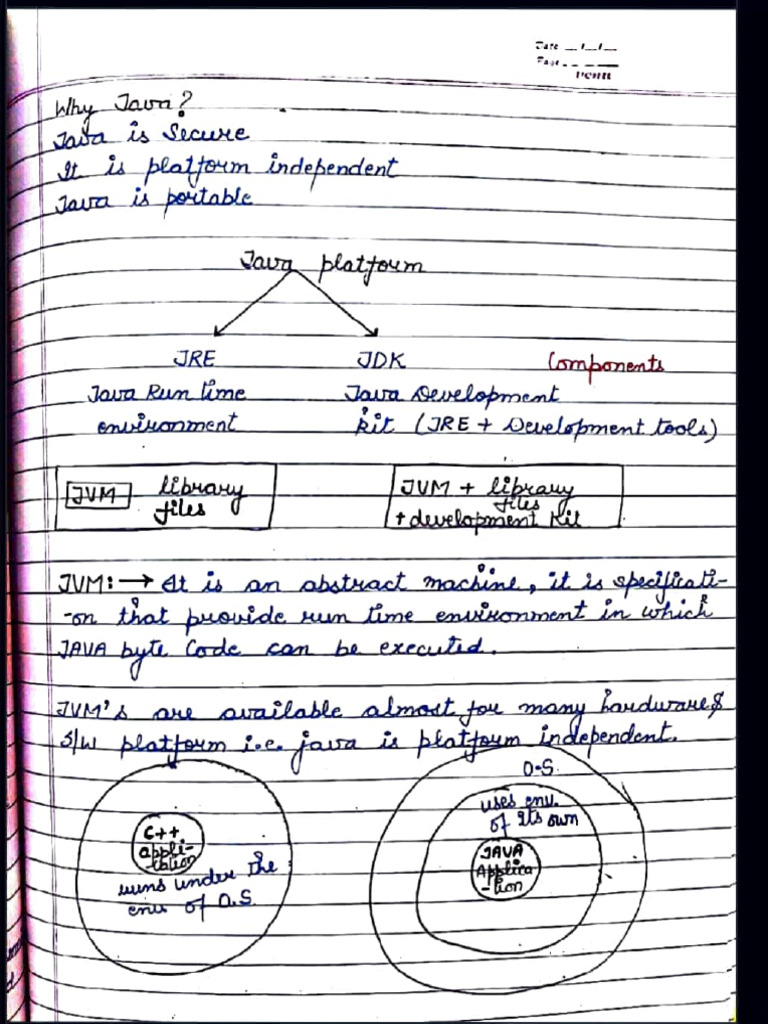 Date __/__/__
Page
Why Java?
Java is Secure
It is platform independent
Java is portable
Java platform
JRE JDK Components
Java Run time Java Development
environment kit (JRE + Development tools)
JVM library files
JVM + library files
+ development Kit
JVM: → It is an abstract machine, it is specificati-
-on that provide run time environment in which
JAVA byte Code can be executed.
JVM's are available almost for many hardware &
S/W platform i.e. java is platform independent.
C++
appli-
cation
runs under the
env of O.S.
O.S.
uses env.
of its own
JAVA
Applica
-tion